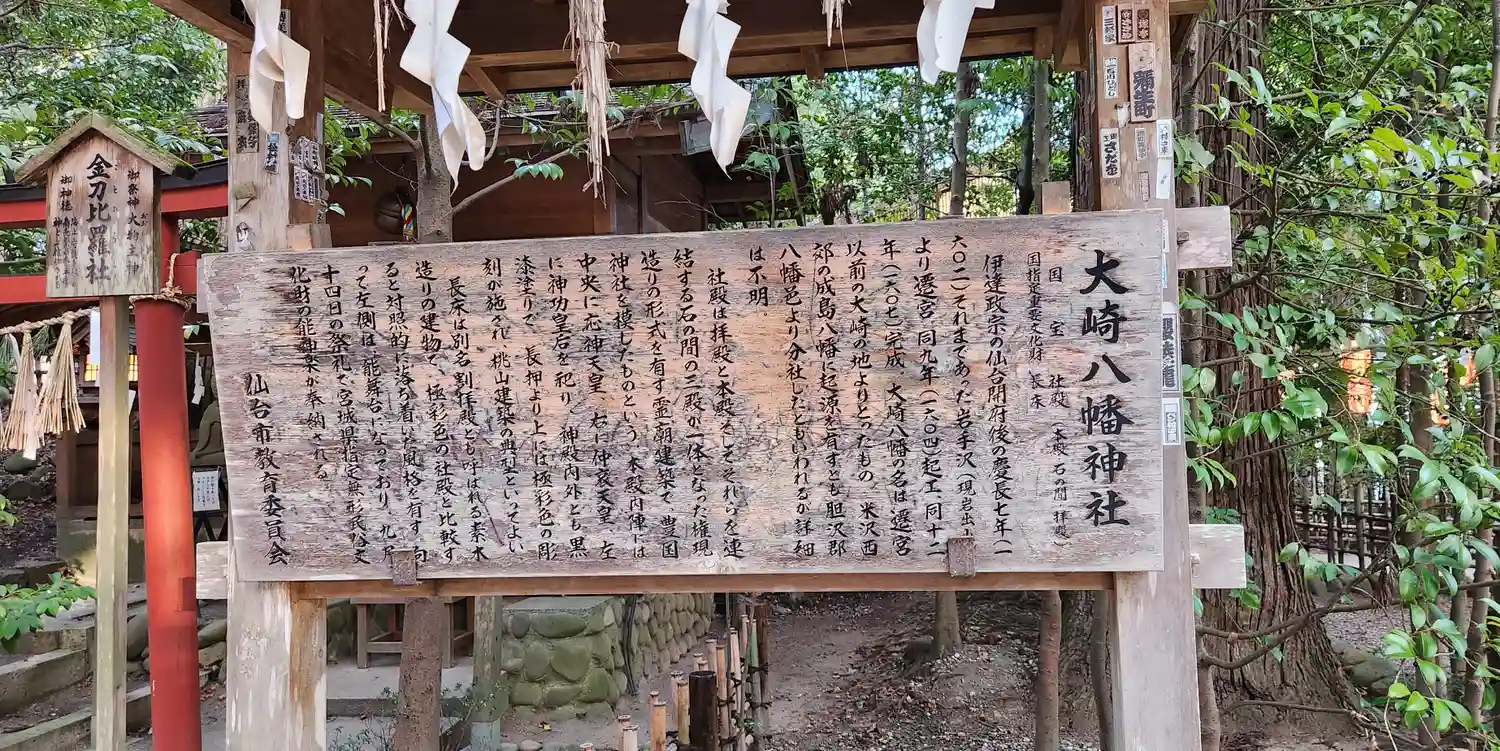 大崎八幡神社
国宝 社殿(本殿 石の間 拝殿)
国指定重要文化財 長床
伊達政宗の仙台開府後の慶長七年(一
六〇二)それまであった岩手沢(現岩出山)
より遷宮、同九年(一六〇四)起工、同十二
年(一六〇七)完成、大崎八幡の名は遷宮
以前の大崎の地よりとったもの、米沢西
郊の成島八幡に起源を有すとも胆沢郡
八幡邑より分社したともいわれるが詳細
は不明。
社殿は拝殿と本殿そしてそれらを連
結する石の間の三殿が一体となった権現
造りの形式を有す霊廟建築で、豊国
神社を模したものという。本殿内陣には
中央に応神天皇、右に仲哀天皇、左
に神功皇后を祀り、神殿内外とも黒
漆塗りで、長押より上には極彩色の彫
刻が施され、桃山建築の典型といってよい
長床は別名割拝殿とも呼ばれる素木
造りの建物で、極彩色の社殿と比較す
ると対照的に落ち着いた風格を有す。向
って左側は能舞台になっており、九月
十四日の祭礼で宮城県指定無形民俗文
化財の能神楽が奉納される
仙台市教育委員会
御祭神 大物主神
金刀比羅社
ことひら
御神徳